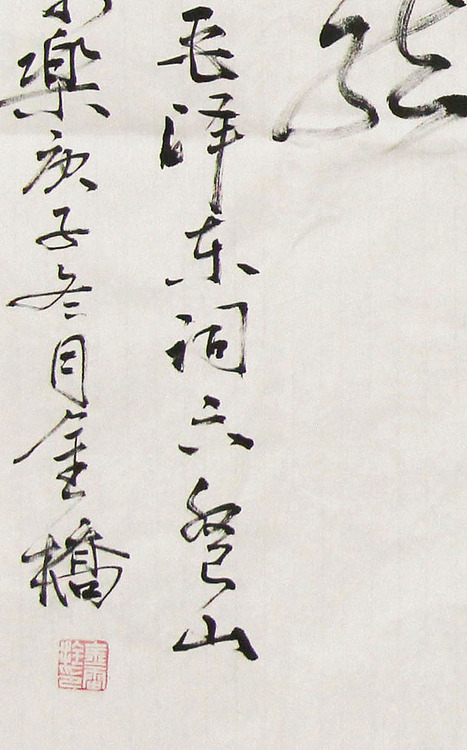 毛泽东词六盘山
樂庚子冬月金橋